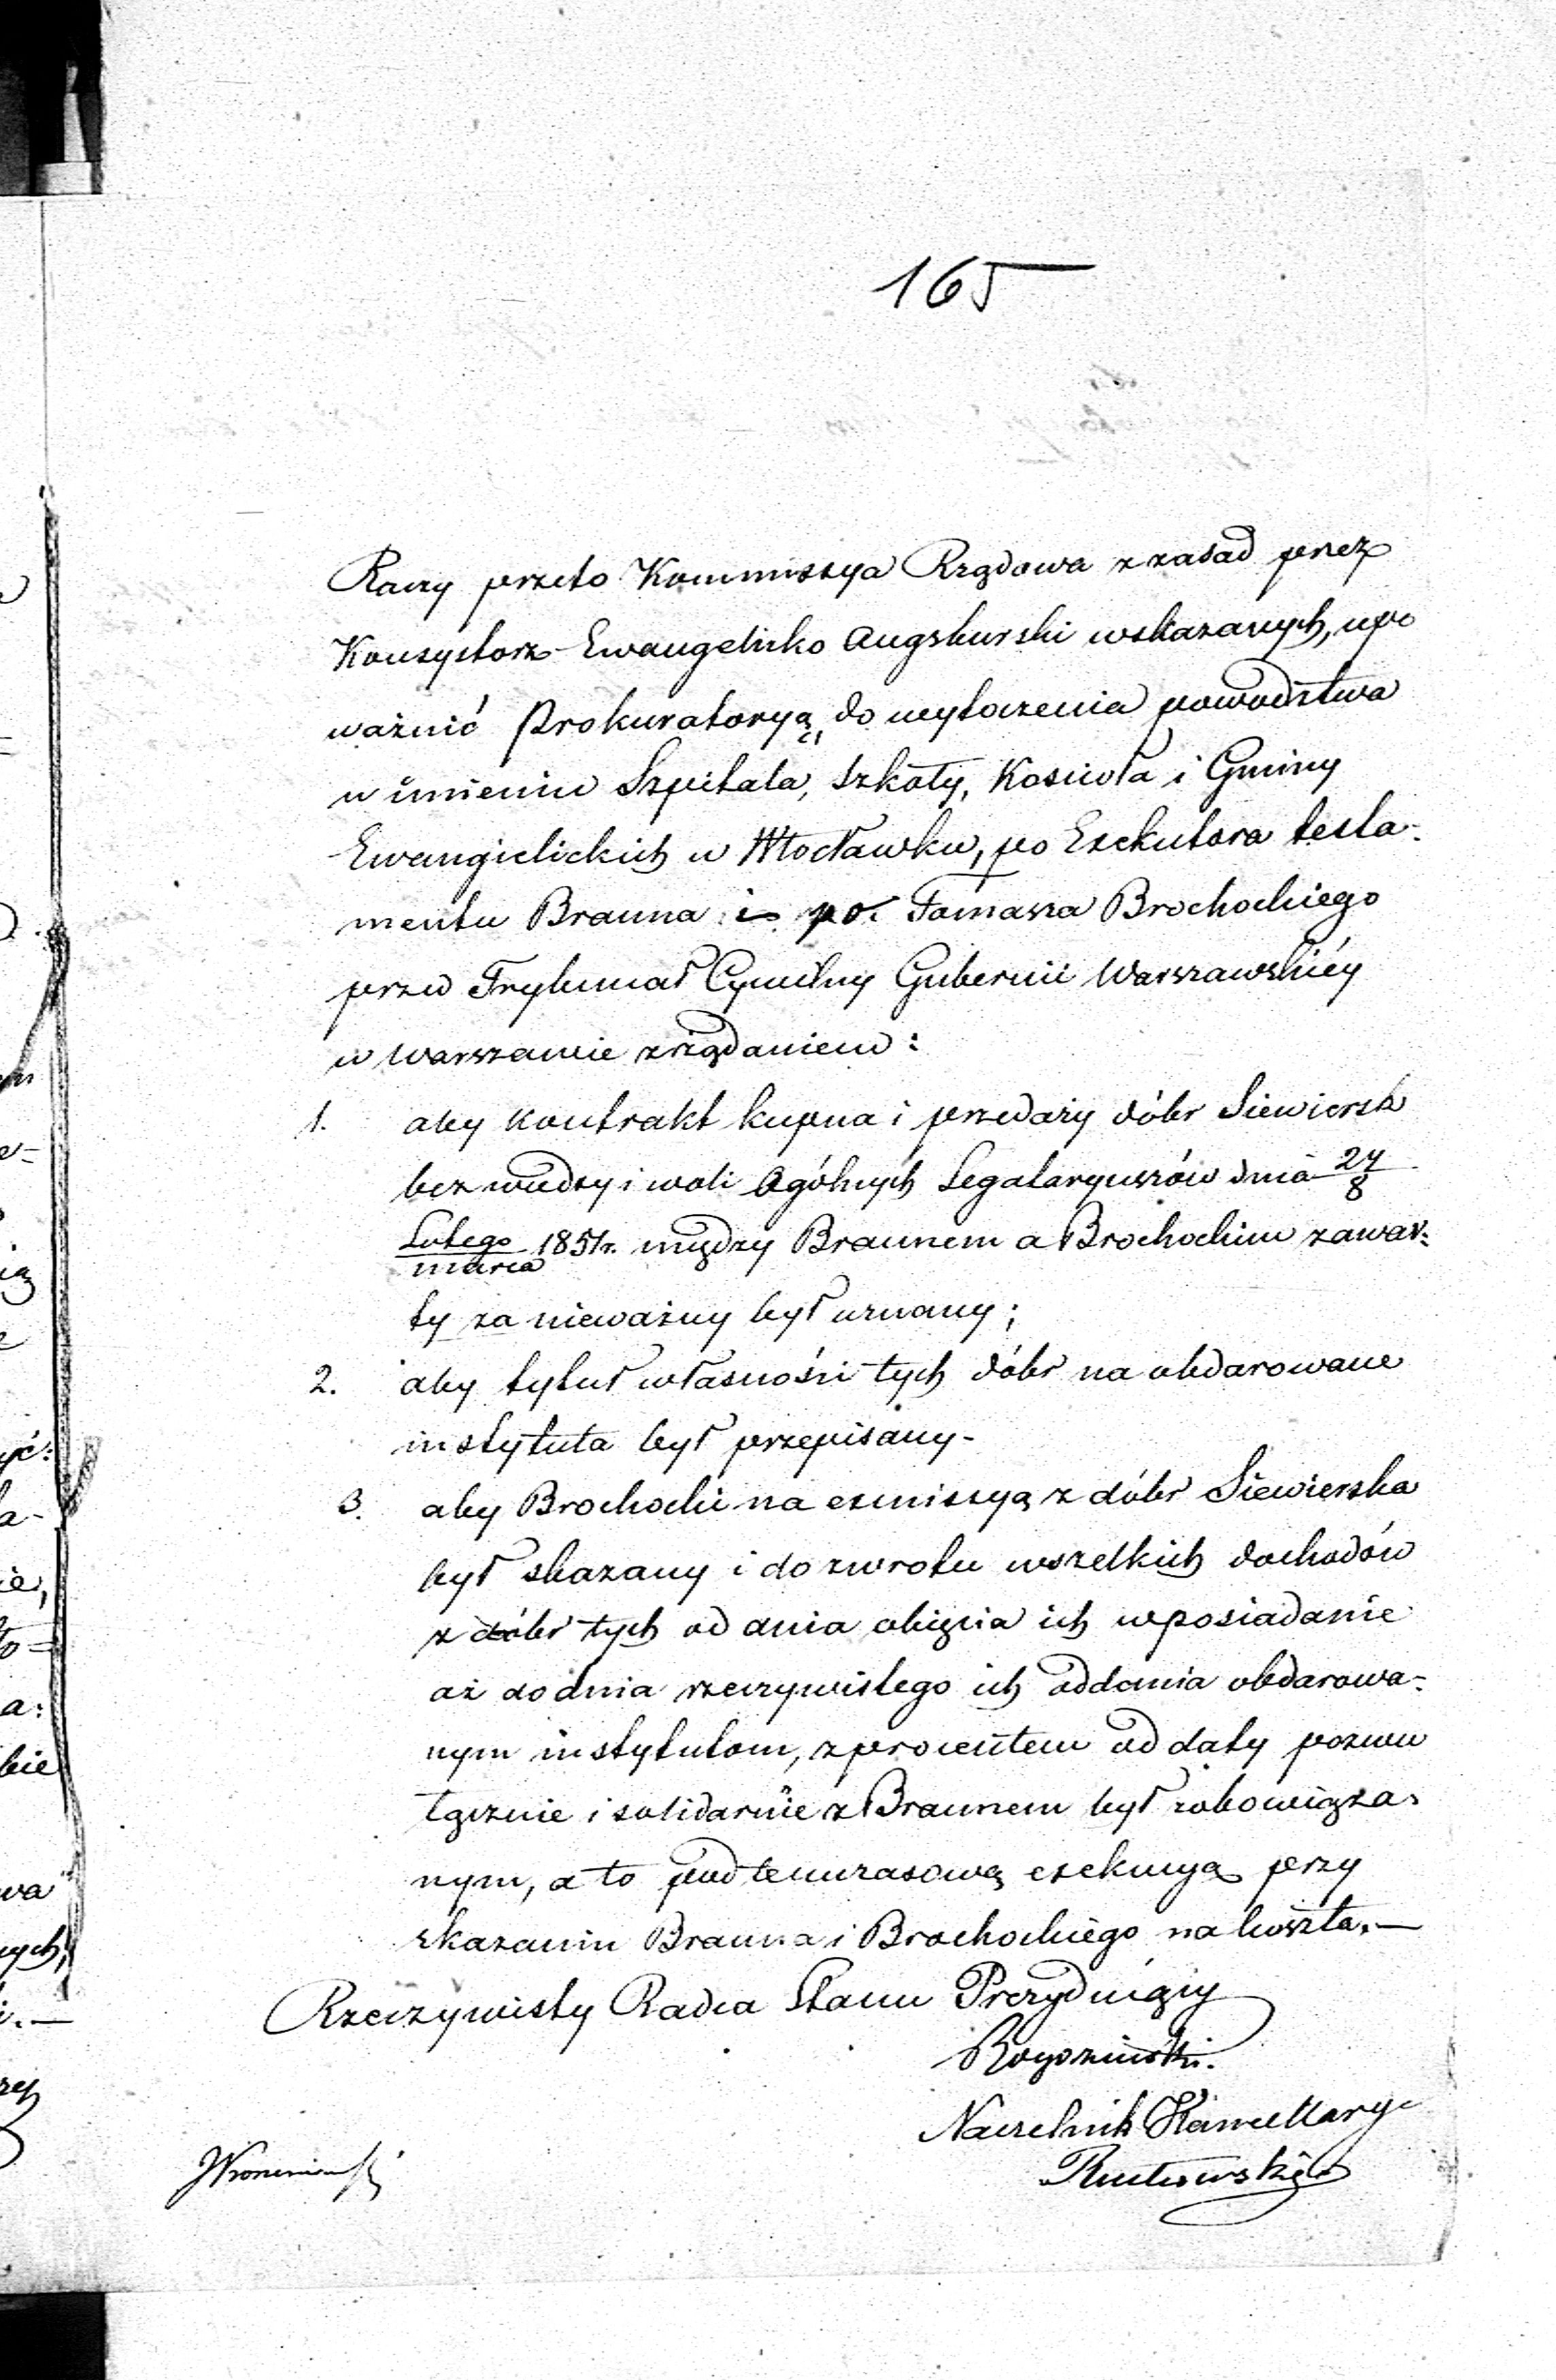 165
Raczy przeto Kommissya Rządowa z zasad przez
Konsystorz Ewangelicko Augsburski wskazanych, upo
ważnić Prokuratoryą do wytoczenia powództwa
w imieniu Szpitala, Szkoły, Kościoła i Gminy
Ewangielickich w Włocławku, po Exekutora testa-
mentu Brauna i po. Tomasza Brochockiego
przed Trybunał Cywilny Gubernii Warszawskiéy
w Warszawie z żądaniem:
1. aby kontrakt kupna i przedaży dóbr Siewiersk
bez wiedzy i woli Ogólnych Legataryuszów dnia 24/8
Lutego/marca 1851r. między Braunem a Brochockim zawar:
ty za nieważny był uznany;
2. aby tytuł własności tych dóbr na obdarowane
instytuta był przepisany-
3. aby Brochocki na exmissyą z dóbr Siewierska
był skazany i do zwrotu wszelkich dochodów
z dóbr tych od dnia obięcia ich w posiadanie
aż do dnia rzeczywistego ich oddania obdarowa-
nym instytutom, z procentem od daty pozwu
łącznie i solidarnie z Braunem był zobowiąza-
nym, a to pod temczasową exekucyą przy
skazaniu Brauna i Brochockiego na koszta.—
Rzeczywisty Radca Stanu Prezyduiący
Naczelnik Kancellaryi